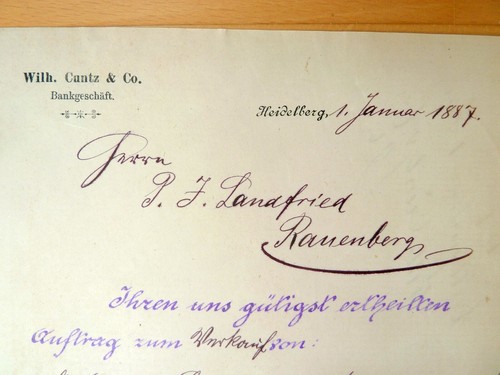 Wilh. Cuntz & Co.
Bankgeschäft.
Heidelberg, 1. Januar 1887.
Herrn
P. J. Landfried
Rauenberg
Ihren uns gütigst ertheilten
Auftrag zum Verkauf von: